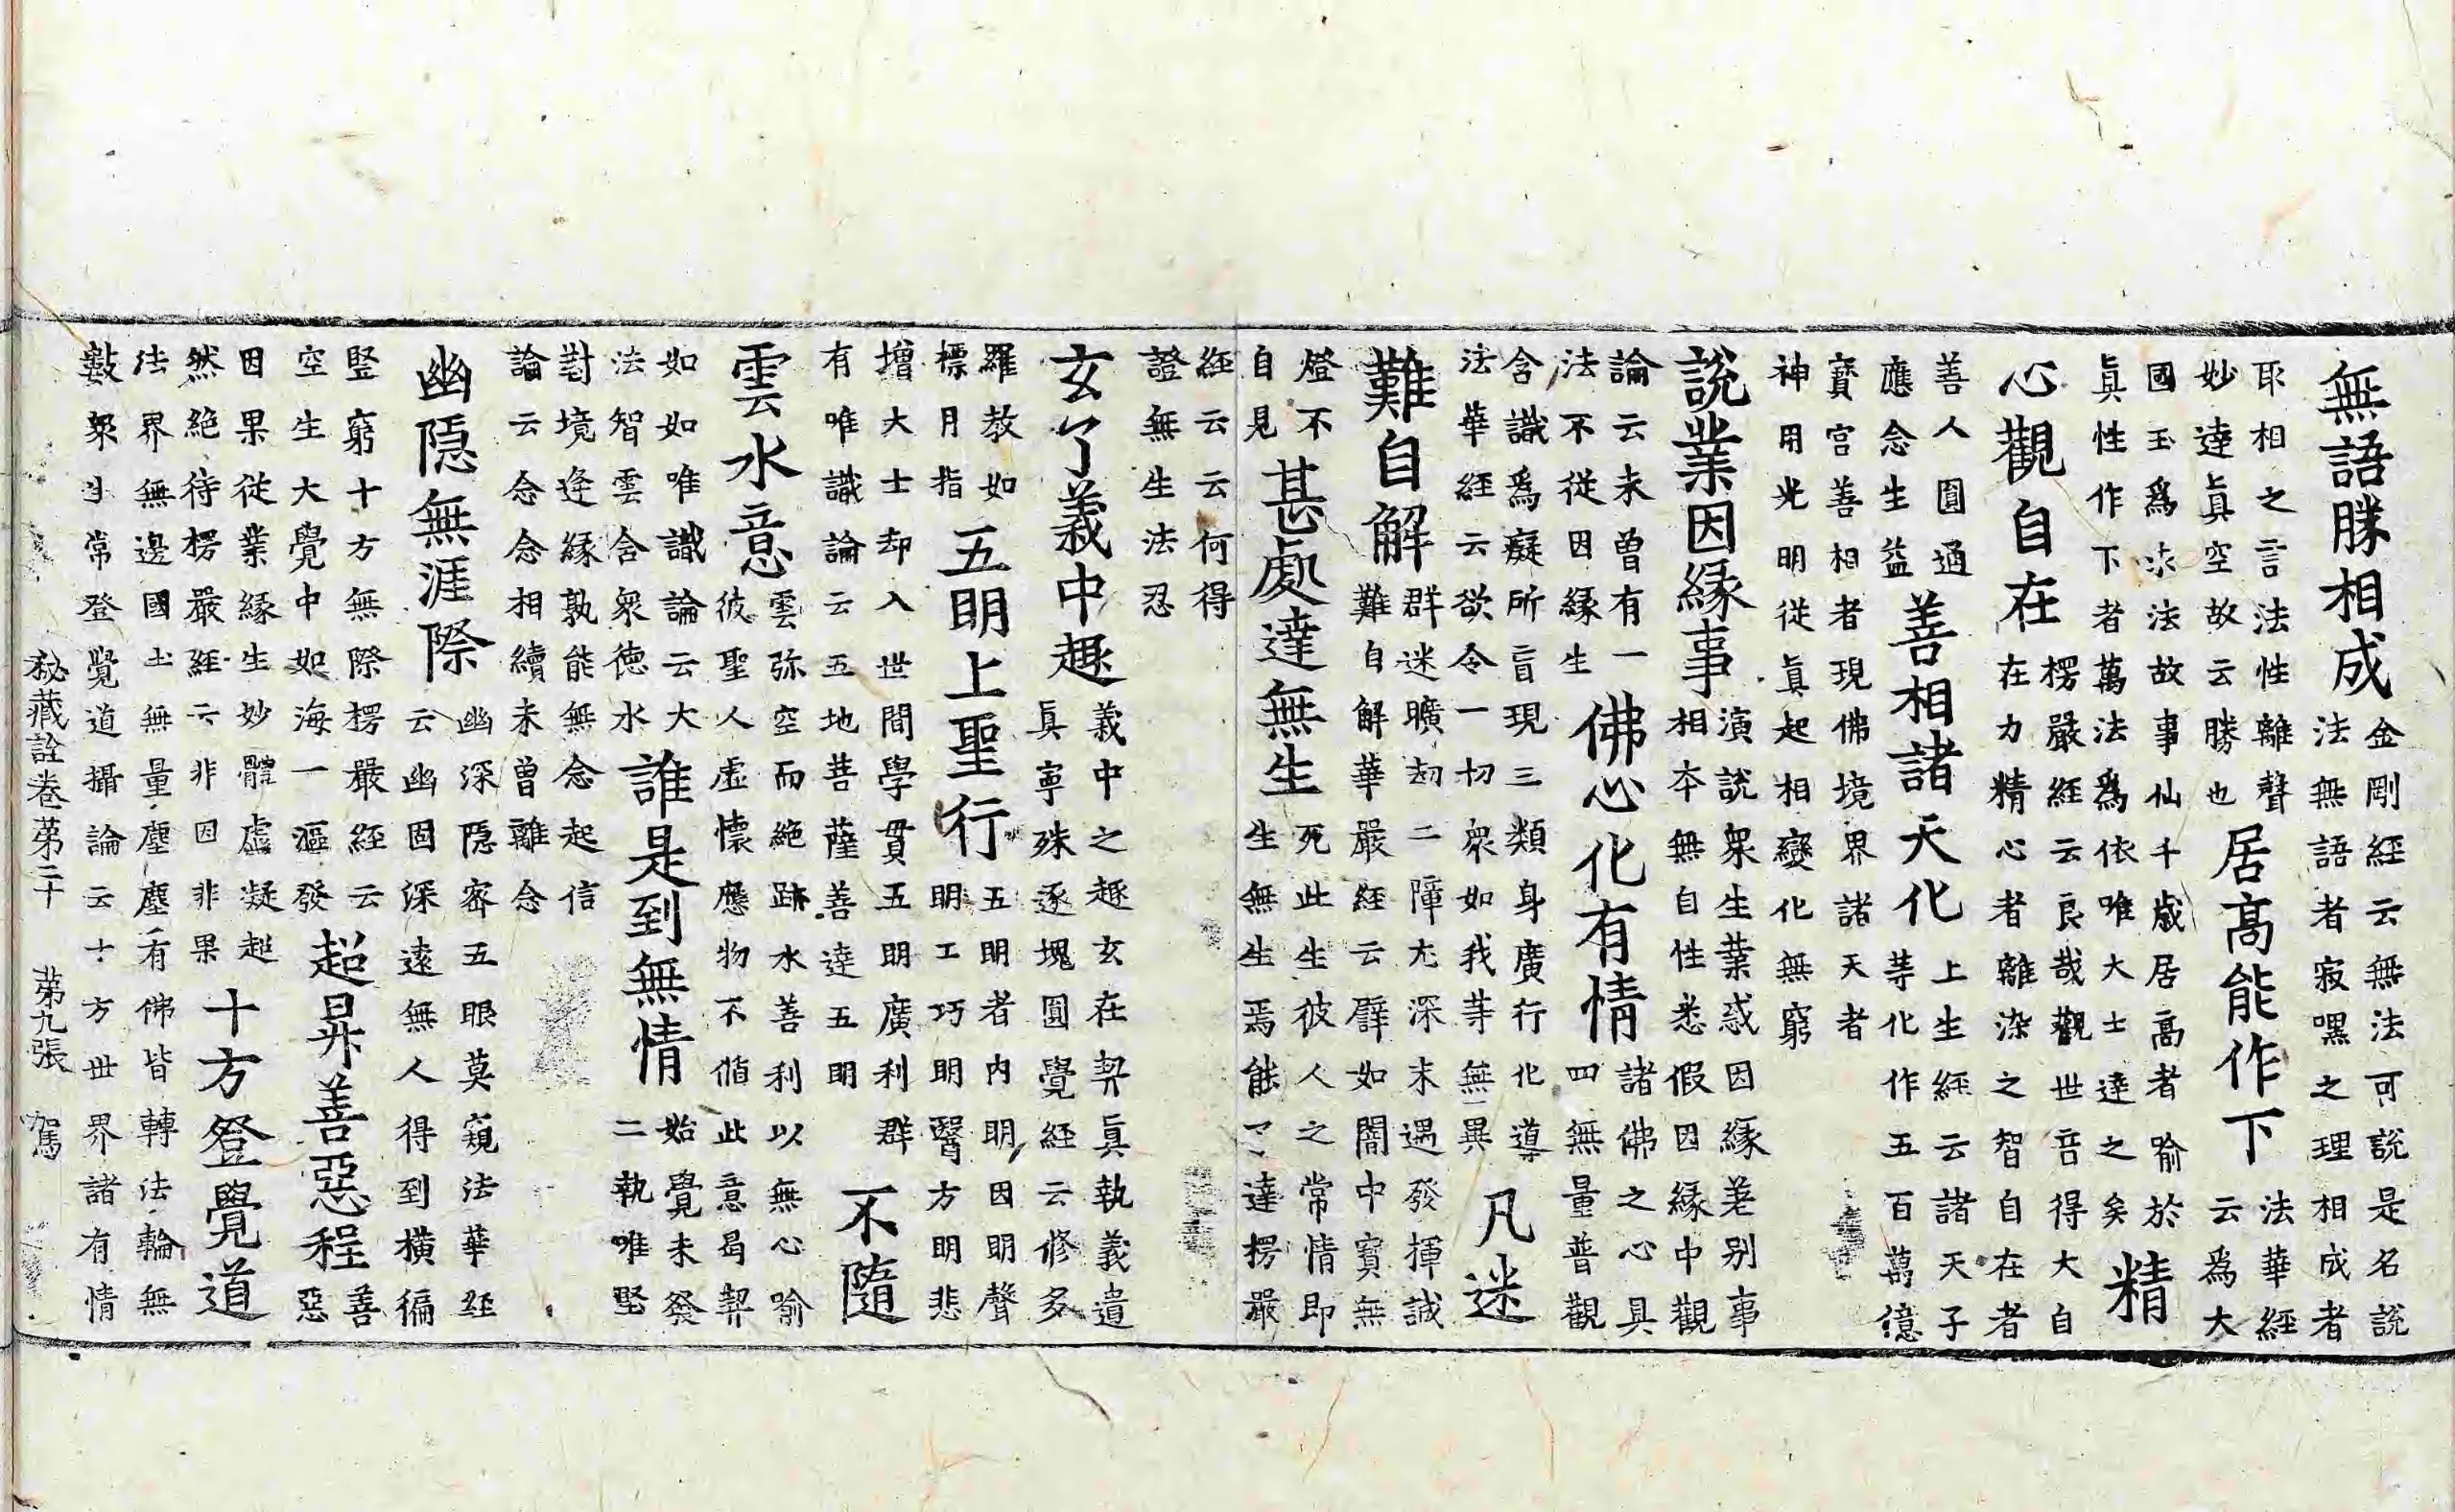 無語勝相成
金剛經云無法可說是名說
法無語者寂嘿之理相成者
耶相之言法性離聲
妙達眞空故云勝也
居高能作下
法華經
云爲大
國王爲求法故事仙千歲居高者喻於
眞性作下者萬法爲依唯大士達之矣
精
心觀自在
楞嚴經云良哉觀世音得大自
在力精心者離染之智自在者
善人圓通
應念生益
善相諸天化
上生經云諸天子
等化作五百萬億
寶宮善相者現佛境界諸天者
神用光明從眞起相變化無窮
說業因緣事
演說衆生業惑因緣差别事
相本無自性悉假因緣中觀
論云未曾有一
法不從因緣生
佛心化有情
諸佛之心具
四無量普觀
含識爲癡所盲現三類身廣行化導
法華經云欲令一切衆如我等無異
凡迷
難自解
群迷曠刼二障尤深未遇發揮誠
難自解華嚴經云譬如闇中寳無
燈不
自見
甚處達無生
死此生彼人之常情即
生無生焉能了達楞嚴
經云云何得
證無生法忍
玄了義中趣
義中之趣玄在契眞執義遺
眞寧殊逐塊圓覺經云修多
羅教如
標月指
五明上聖行
五明者内明因明聲
明工巧明醫方明悲
增大士却入世間學貫五明廣利群
有唯識論云五地菩薩善達五明
不隨
雲水意
雲弥空而絶跡水善利以無心喻
彼聖人虛懷應物不偱此意曷契
如如唯識論云大
法智雲含衆德水
誰是到無情
始覺未發
二執唯堅
對境逢緣孰能無念起信
論云念念相續未曾離念
幽隠無涯際
幽深隠密五眼莫窺法華經
云幽固深遠無人得到橫徧
竪窮十方無際楞嚴經云
空生大覺中如海一漚發
超昇善惡程
善
惡
因果從業緣生妙體虛凝超
然絶待楞嚴經云非因非果
十方登覺道
法界無邊國土無量塵塵有佛皆轉法輪無
數衆生常登覺道攝論云十方世界諸有情
秘藏詮卷第二十　第九張　駕